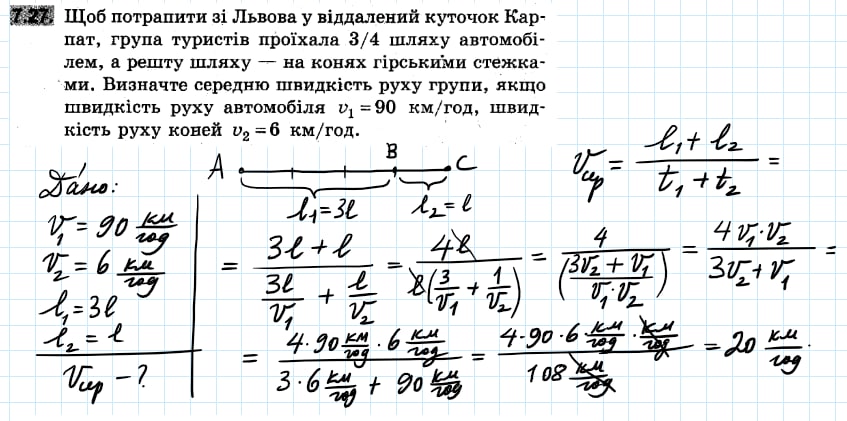 7.27. Щоб потрапити зі Львова у віддалений куточок Кар-
пат, група туристів проїхала 3/4 шляху автомобі-
лем, а решту шляху — на конях гірськими стежка-
ми. Визначте середню швидкість руху групи, якщо
швидкість руху автомобіля v₁ = 90 км/год, швид-
кість руху коней v₂ = 6 км/год.
A B C
l₁ = 3l l₂ = l
Vср = (l₁ + l₂)/(t₁ + t₂) =
Дано:
V₁ = 90 км/год
V₂ = 6 км/год
l₁ = 3l
l₂ = l
Vср – ?
= (3l + l)/(3l/V₁ + l/V₂) = 4l/(l(3/V₁ + 1/V₂)) = 4/((3V₂ + V₁)/(V₁·V₂)) = 4V₁·V₂/(3V₂ + V₁) =
= (4·90 км/год · 6 км/год)/(3·6 км/год + 90 км/год) = (4·90·6 км/год · км/год)/(108 км/год) = 20 км/год.